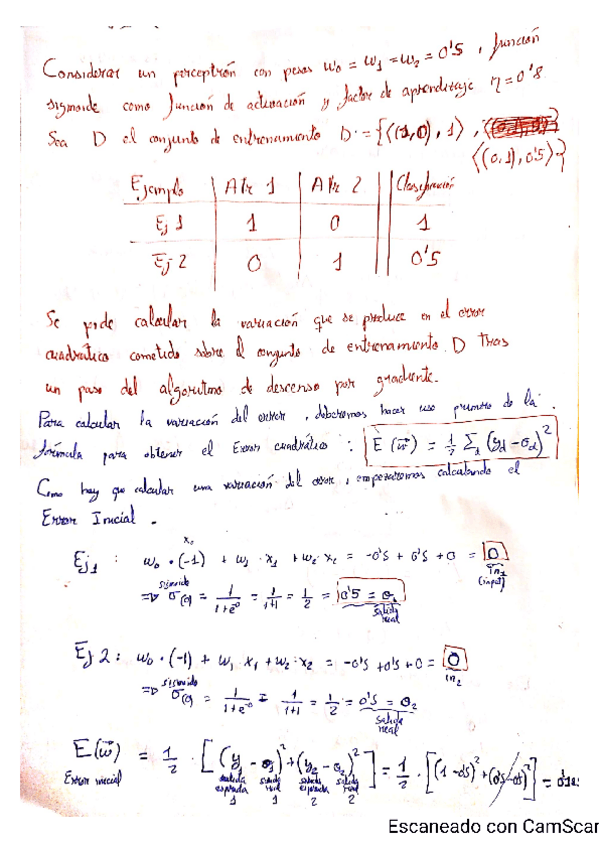 Considerar un perceptrón con pesos w0 = w1 = w2 = 0'5 , función
sigmoide como función de activación y factor de aprendizaje η = 0'8
Sea D el conjunto de entrenamiento D = {⟨(1,0), 1⟩ ,
⟨(0,1), 0'5⟩}
Ejemplo | Atr 1 | Atr 2 || Clasificación
Ej 1 | 1 | 0 || 1
Ej 2 | 0 | 1 || 0'5
Se pide calcular la variación que se produce en el error
cuadrático cometido sobre el conjunto de entrenamiento D tras
un paso del algoritmo de descenso por gradiente.
Para calcular la variación del error , deberemos hacer uso primero de la
fórmula para obtener el Error cuadrático : E (w⃗) = 1/2 Σd (yd - σd)²
Como hay que calcular una variación del error, empezaremos calculando el
Error Inicial .
x0
Ej1 : w0 · (-1) + w1 · x1 + w2 · x2 = -0'5 + 0'5 + 0 = 0
in1
(input)
sigmoide
=> σ(0) = 1/(1+e^-0) = 1/(1+1) = 1/2 = 0'5 = σ1
salida
real
Ej 2 : w0 · (-1) + w1 · x1 + w2 · x2 = -0'5 + 0'5 + 0 = 0
in2
sigmoide
=> σ(0) = 1/(1+e^-0) = 1/(1+1) = 1/2 = 0'5 = σ2
salida
real
E(w⃗) = 1/2 · [(y1 - σ1)² + (y2 - σ2)²] = 1/2 · [(1 - 0'5)² + (0'5 - 0'5)²] =
Error inicial salida esperada 1 salida real 1 salida esperada 2 salida real 2
Escaneado con CamScan